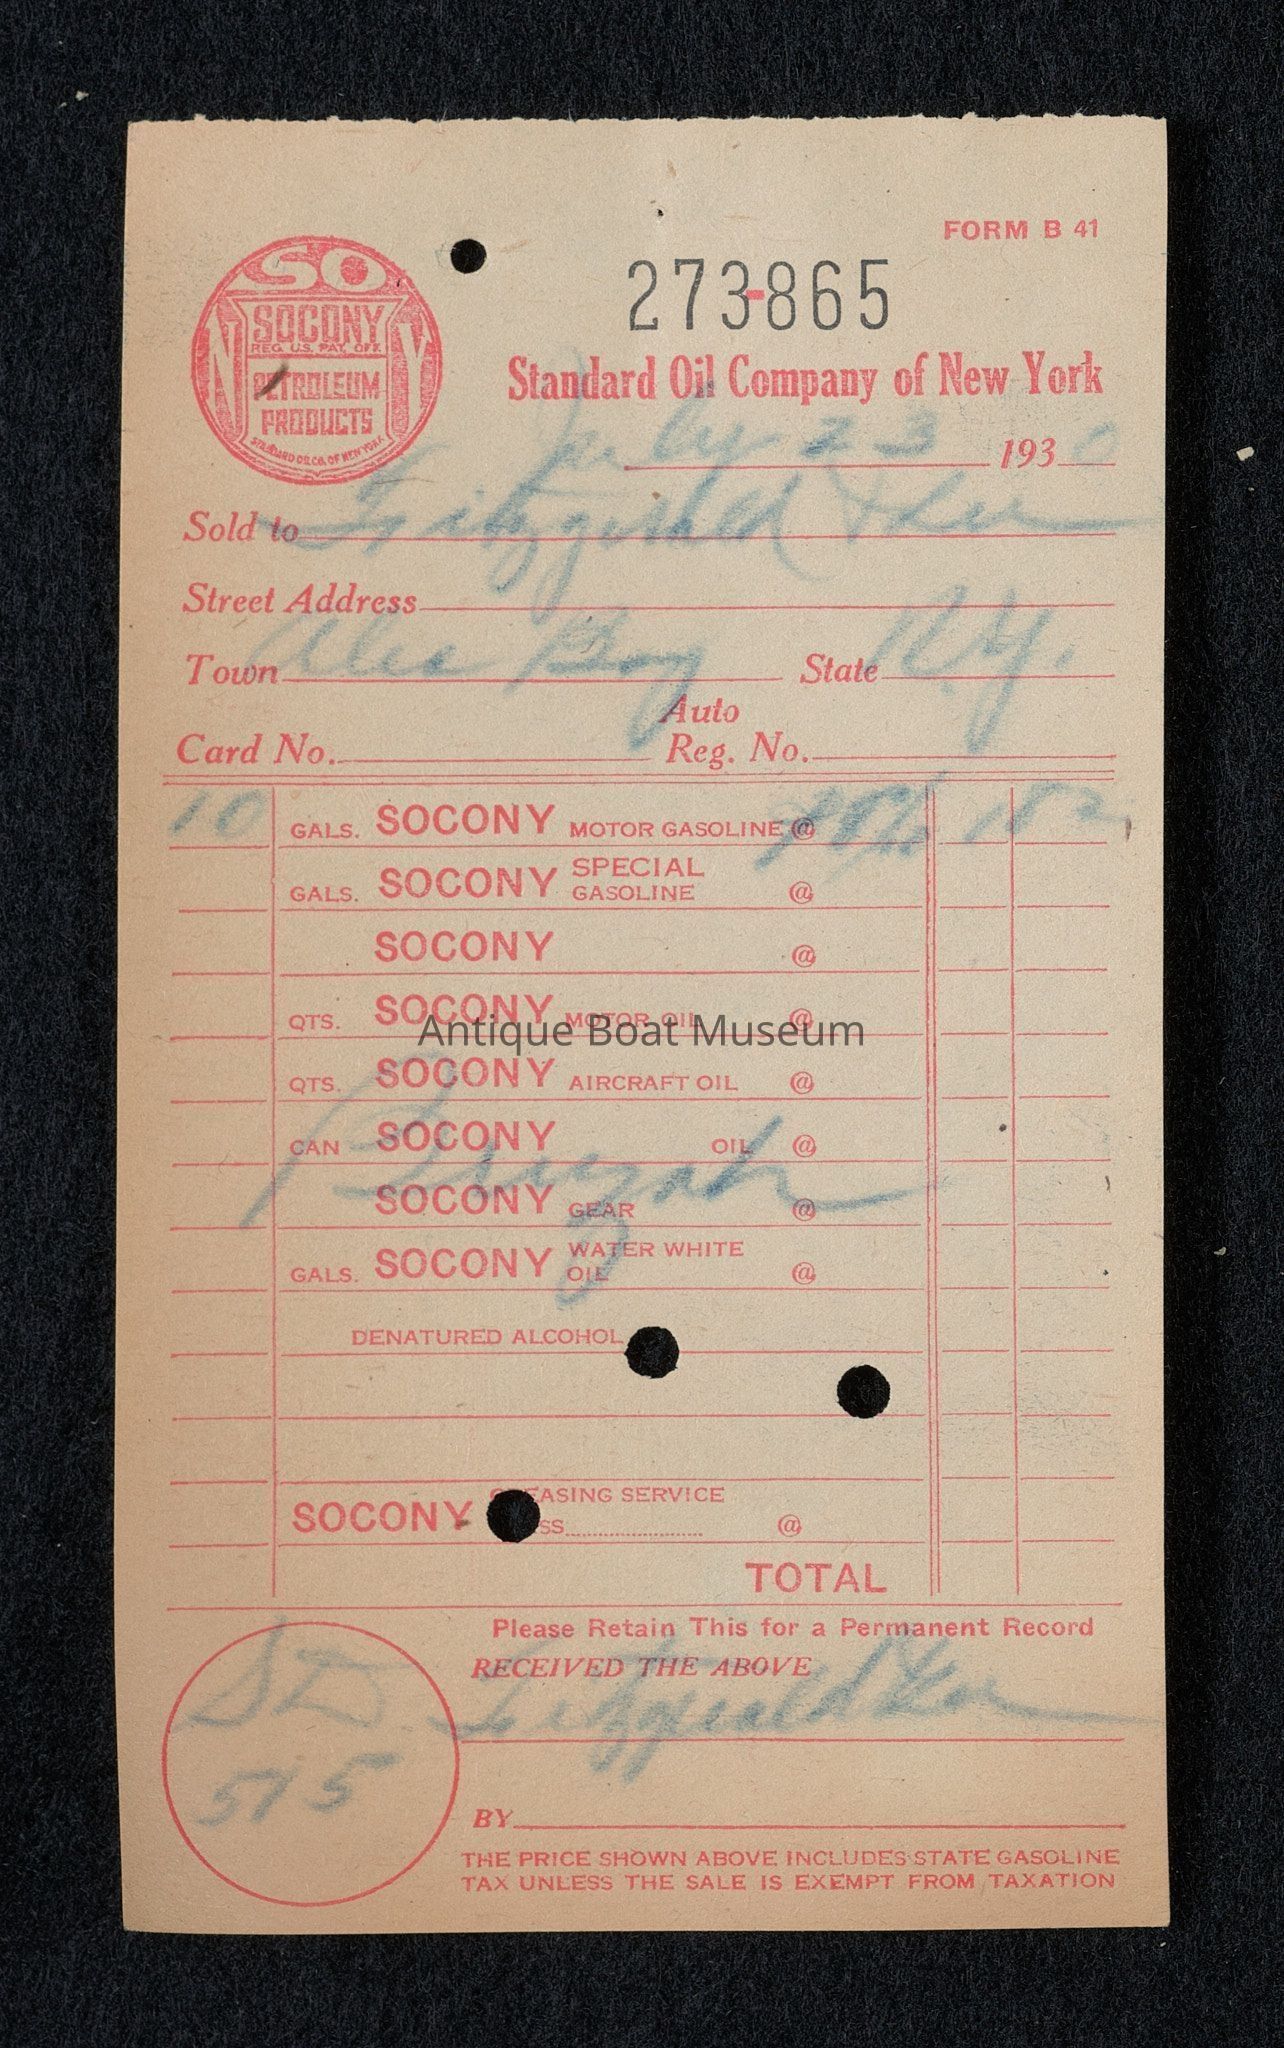 FORM B 41
SO
SOCONY
REG. U.S. PAT. OFF.
N Y
PETROLEUM
PRODUCTS
STANDARD OIL CO. OF NEW YORK
273-865
Standard Oil Company of New York
July 23 1930
Sold to Fitzgerald & Lee
Street Address
Town Alex Bay State N.Y.
Card No. Auto Reg. No.
10 GALS. SOCONY MOTOR GASOLINE @ 182
GALS. SOCONY SPECIAL GASOLINE @
SOCONY @
QTS. SOCONY MOTOR OIL @
Antique Boat Museum
QTS. SOCONY AIRCRAFT OIL @
CAN SOCONY OIL @
SOCONY GEAR @
GALS. SOCONY WATER WHITE OIL @
DENATURED ALCOHOL
SOCONY GREASING SERVICE
@
TOTAL
Please Retain This for a Permanent Record
RECEIVED THE ABOVE
Fitzgerald & Lee
515
BY
THE PRICE SHOWN ABOVE INCLUDES STATE GASOLINE
TAX UNLESS THE SALE IS EXEMPT FROM TAXATION